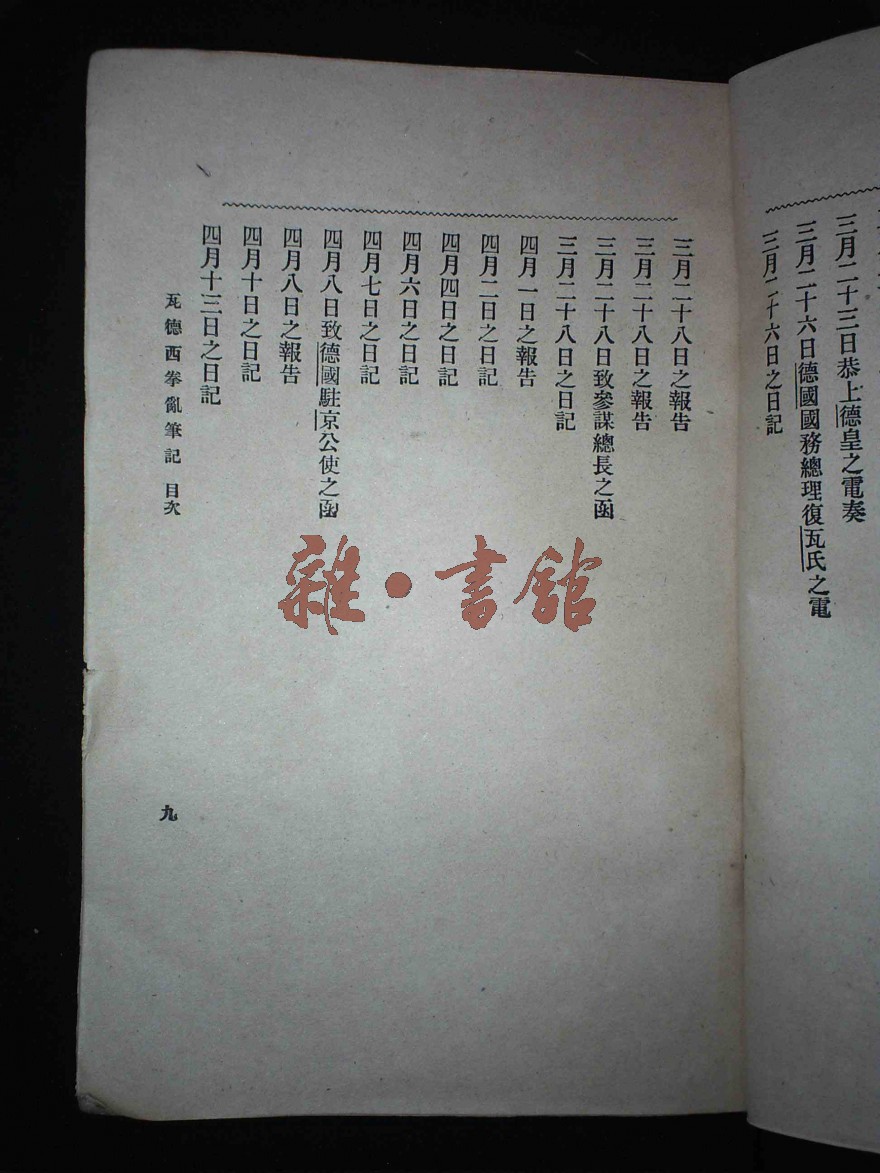 三月二十三日恭上德皇之電奏
三月二十六日德國國務總理復瓦氏之電
三月二十六日之日記
三月二十八日之報告
三月二十八日之報告
三月二十八日致參謀總長之函
三月二十八日之日記
四月一日之報告
四月二日之日記
四月四日之日記
四月六日之日記
四月七日之日記
四月八日致德國駐京公使之函
四月八日之報告
四月十日之日記
四月十三日之日記
瓦德西拳亂筆記 目次
九
雜·書館